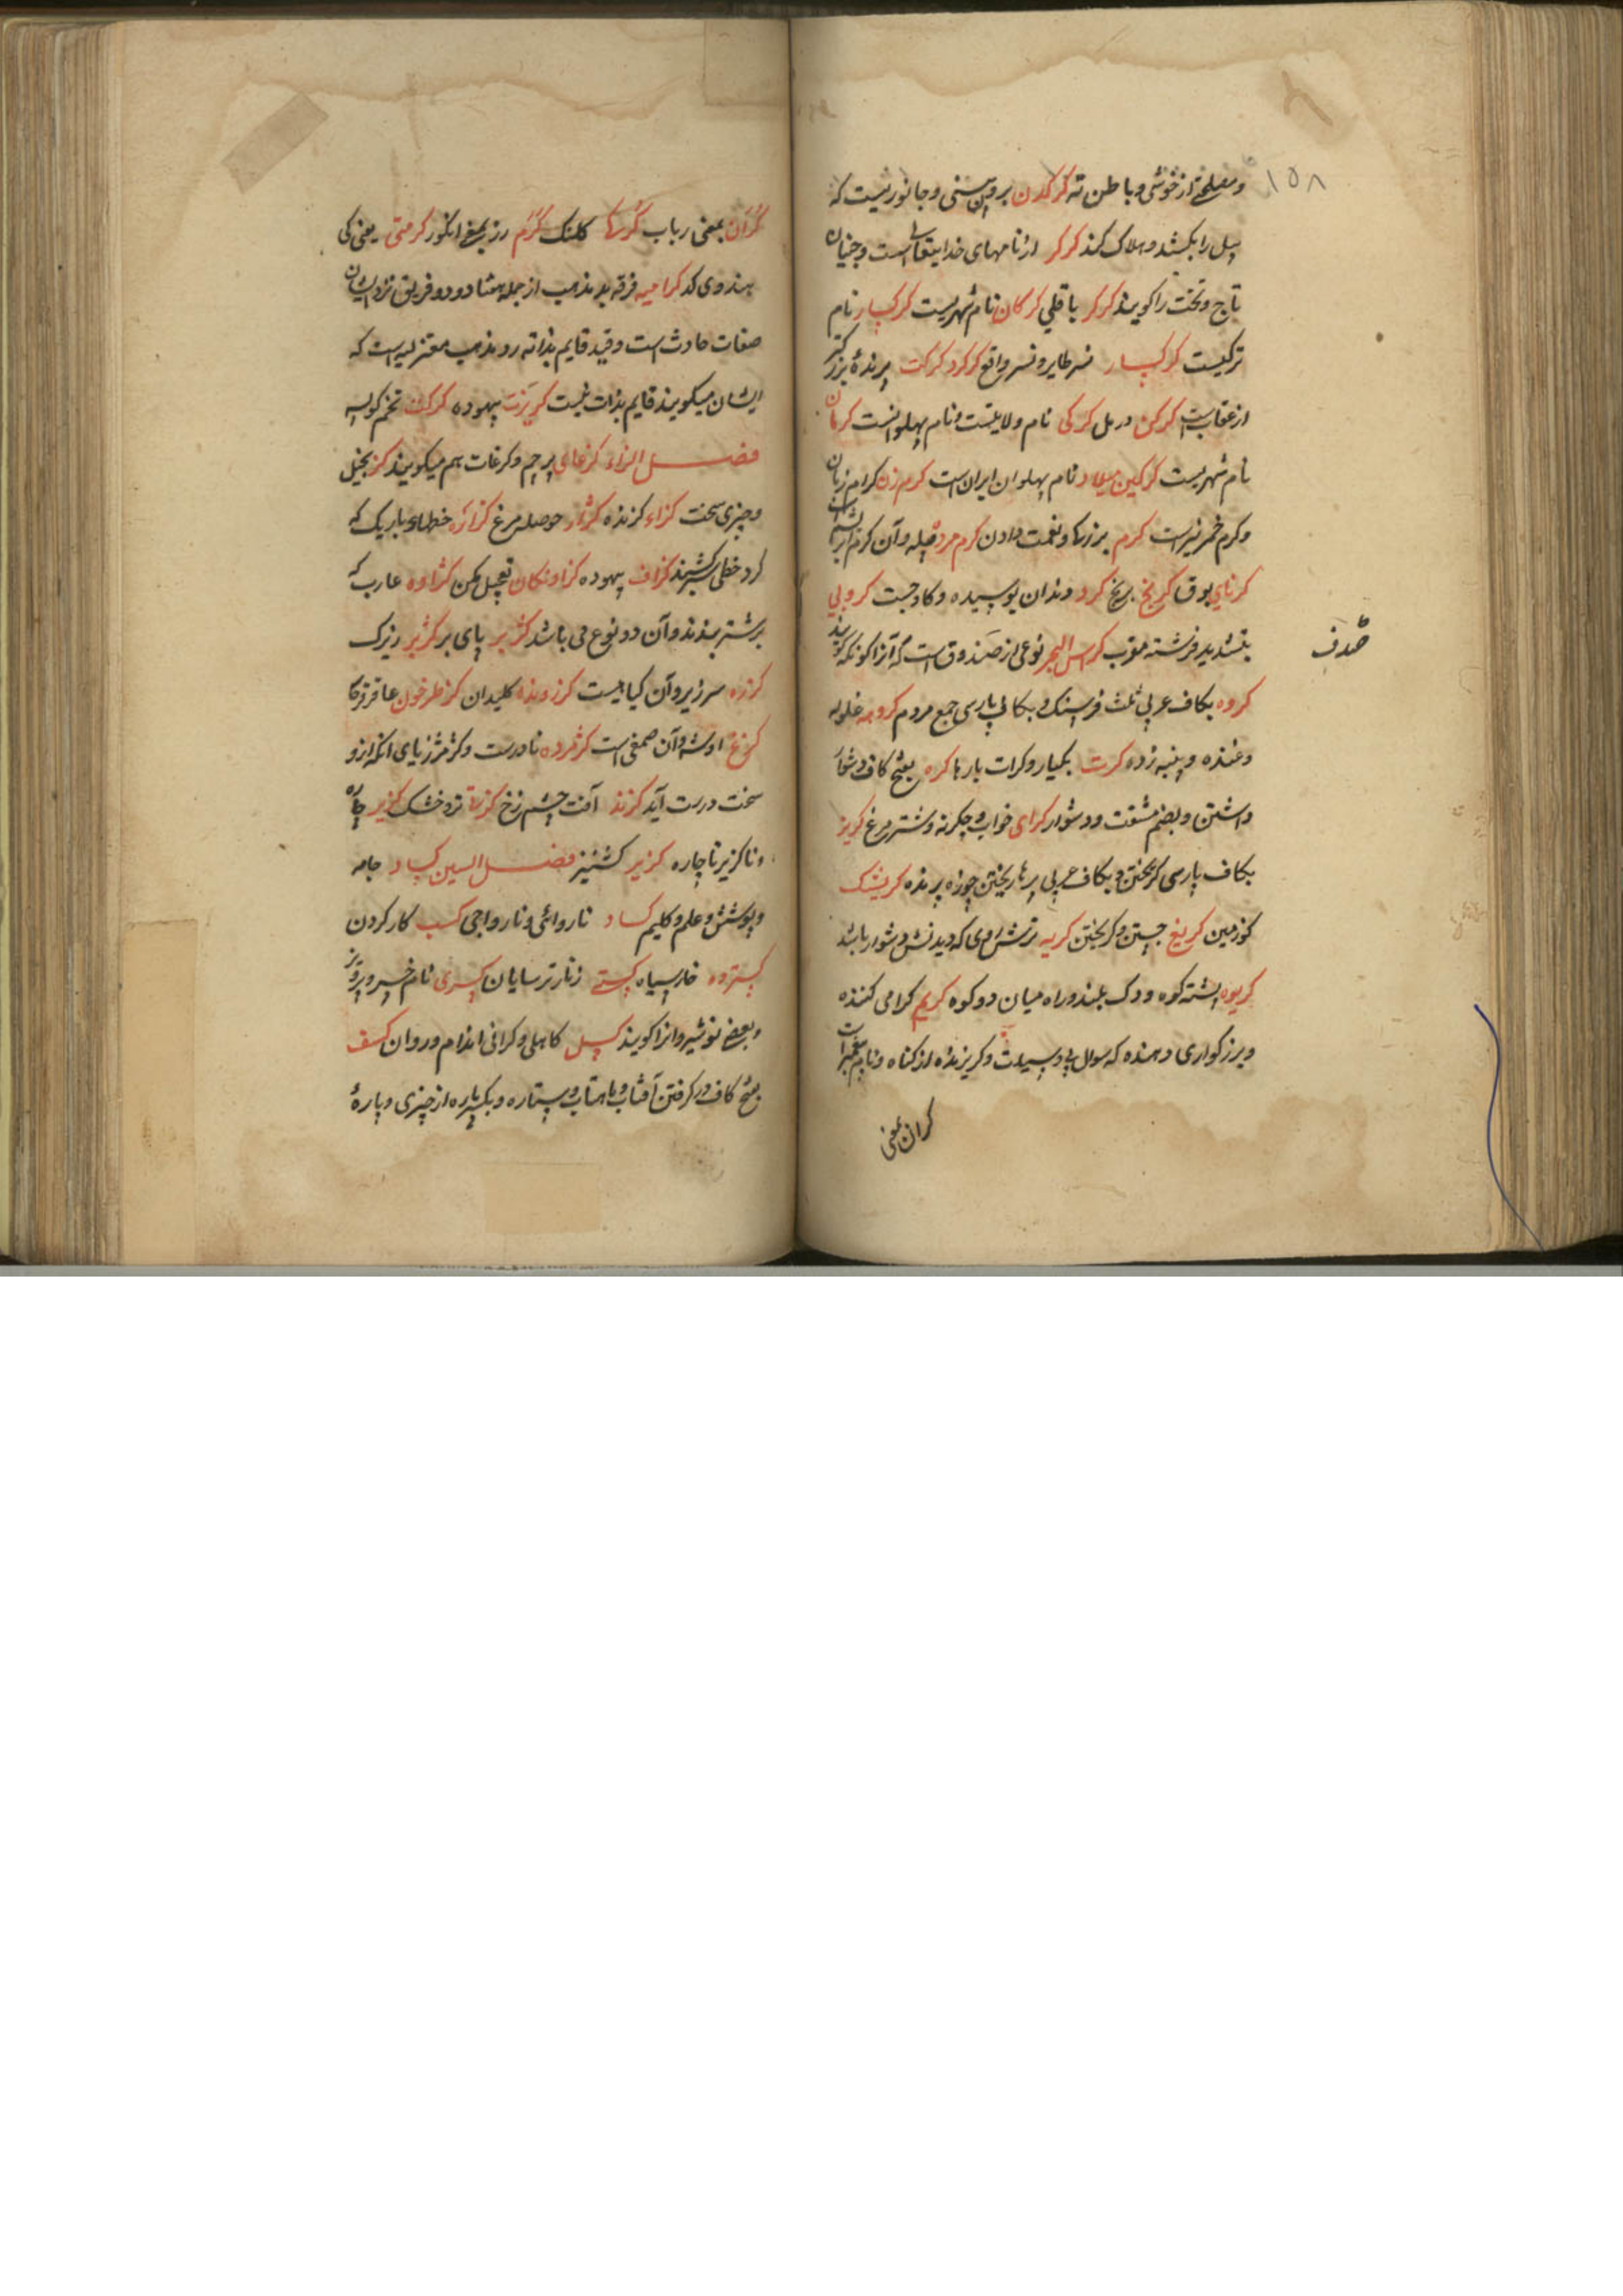 ۱۵۸
از خوشی و باطن ته کرکدن بروین سنی و جانوریست که
پیل را بکشد و هلاک کند کرکر از نامهای خدایتعالی است و چنان
تاج و تخت را کویند کرکر باقلی کرکان نام شهریست کرکسار نام
ترکیست کرکسار نسر طایر و نسر واقع کرکرد کرکت پرندۀ بزرکتر
از عقابست کرکن در مل کرکی نام ولایتست و نام پهلوانست کرمان
نام شهریست کرکین میلاد نام پهلوان ایران است کرم زن کرام زنان
و کرم خمر نیز است کرم بزرکی و نعمت دادن کرم مرد پیله و آن کرم ابریشم است
کرنای بوق کرنج برنج کرد دندان پوسیده و کاو جست کروبی
بتشدید فرشته مقرب کراس البحر نوعی از صندوق است که آنرا کونکه کویند
صدف
کروه بکاف عربی ثلث فرسنک و بکاف پارسی جمع مردم کروهه غلوله
و غنده و پنبه زده کرت یکبار و کرات بارها کره بفتح کاف دشوار
داشتن و بضم مشقت و دشوار کرای خواب و چکرنه و شتر مرغ کریز
بکاف پارسی کریختن و بکاف عربی پرها ریختن چوزه پرنده کریشک
کوز مین کریغ جستن و کریختن کریه ترش روی که دیدنش دشوار باشد
کریوه پشته کوه و دک بلند و راه میان دو کوه کریم کرامی کننده
و بزرکواری دهنده که سوال بی وسیلت و کریزنده از کناه و نام پیغمبر است
کران بمعنی
کران بمعنی رباب کرسا کلنک کرم رز یعنی انکور کرمتی یعنی کی
هندوی کد کرامیه فرقه بد مذهب از جمله هفتاد و دو فریق نزد ایشان
صفات حادث است و قید قایم بذاته رو مذهب معتزلیه است که
ایشان میکویند قایم بذات نیست کریزت بیهوده کرکت تخم کولیه
فصل الزاء کزغای پرچم و کزغات هم میکویند کز بخیل
و چیزی سخت کزاء کزنده کژار حوصله مرغ کزازه خطهای باریک که
کرد خطی کشند کزاف بیهوده کزاونکان تعجیل مکن کژاوه عارب که
برشتر بندند و آن دو نوع می باشد کژبر پای بر کژبر زیرک
کزره سرزیر و آن کیاهیست کزروده کلیدان کزطرخون عاقرقرحا
کزغ اوشه و آن صمغی است کژمرده نادرست و کژمژ زیای انکه ازو
سخت درست آید کزند آفت چشم زخ کزنه تر و خشک کزیر چاره
و ناکزیر ناچاره کزیر کشنیز فصل السین کساد جامه
و پوشش و علم و کلیم کساد ناروائی و نارواجی کسب کار کردن
کسترده خار سیاه کستی زنار ترسایان کسری نام خسرو پرویز
و بعضی نوشیروانرا کویند کسل کاهلی و کرانی اندام و روان کسف
بفتح کاف در کرفتن آفتاب و ماهتاب و ستاره و یکپاره از چیزی و پارۀ